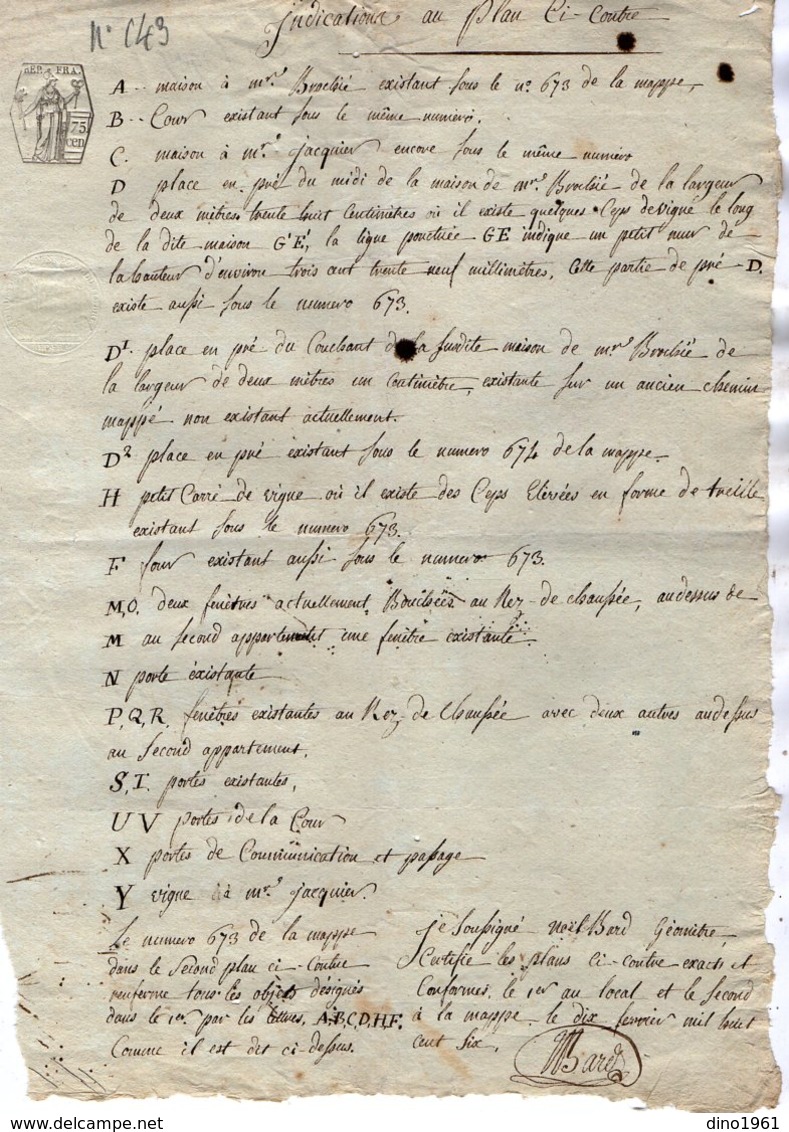 N° 143
Indications au plan Ci-Contre
REP. FRA.
75
cen
A .. maison à mrs Brochié existant sous le n° 673 de la mappe,
B .. Cour existant sous le même numéro.
C. maison à mrs jacquier encore sous le même numéro
D place en pré du midi de la maison de mrs Brochié de la largeur
de deux mètres trente huit Centimètres où il existe quelques Ceps de vigne le long
de la dite maison G'E', la ligne ponctuée GE indique un petit mur de
la hauteur d'environ trois cent trente neuf millimètres, Cette partie de pré D.
existe aussi sous le numero 673.
D1. place en pré du Couchant de la susdite maison de mrs Brochié de
la largeur de deux mètres un centimètre, existante sur un ancien chemin
mappé non existant actuellement.
D2 place en pré existant sous le numero 674 de la mappe.
H petit Carré de vigne où il existe des Ceps Elevées en forme de treille
existant sous le numero 673.
F four existant aussi sous le numero 673.
M,O, deux fenêtres actuellement Bouchées au Rez-de chaussée, au dessus de
M au second appartement une fenêtre existante.
N porte éxistante
P,Q,R, fenêtres existantes au Rez-de Chaussée avec deux autres au dessus
au Second appartement.
S,T. portes existantes,
U V portes de la Cour
X portes de Communication et passage
Y vigne à mrs jacquier.
Le numero 673 de la mappe
dans le Second plan ci-Contre
renferme tous les objets désignés
dans le 1er par les lettres, A,B,C,D,H,F.
Comme il est dit ci-dessus.
je Soussigné Noël Bard Géomètre,
Certifie les plans ci-contre exacts et
Conformes, le 1er au local et le Second
à la mappe. le dix fevrier mil huit
cent six,
NBard
dino1961